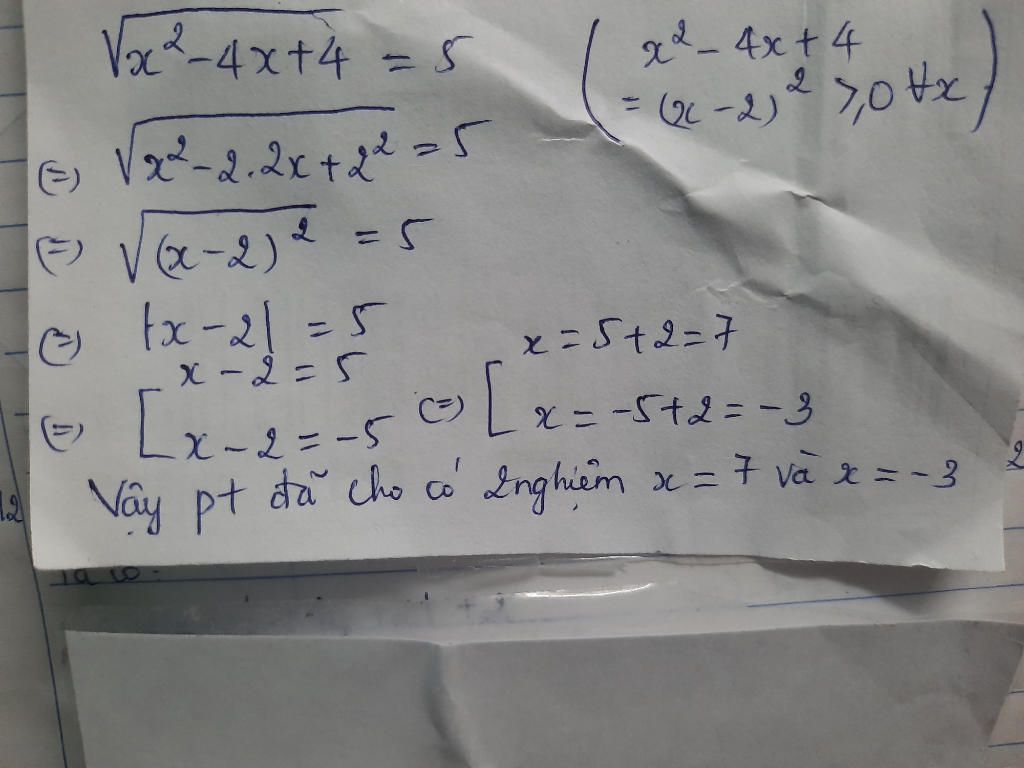 √x² - 4x + 4 = 5 ( x² - 4x + 4
= (x - 2)² ≥ 0 ∀x )
(=) √x² - 2.2x + 2² = 5
(=) √(x - 2)² = 5
(=) |x - 2| = 5
(=) [ x - 2 = 5 (=) [ x = 5 + 2 = 7
x - 2 = -5 x = -5 + 2 = -3
Vậy pt đã cho có 2 nghiệm x = 7 và x = -3
12
2
Ta có: